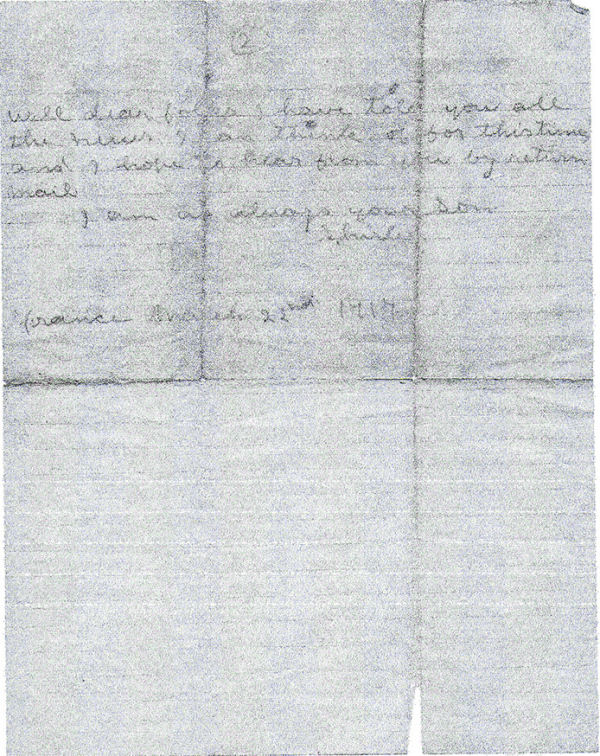 2
well dear folks I have told you all
the news I can think of for this time
and I hope to hear from you by return
mail
I am as always your son
France March 22nd 1917